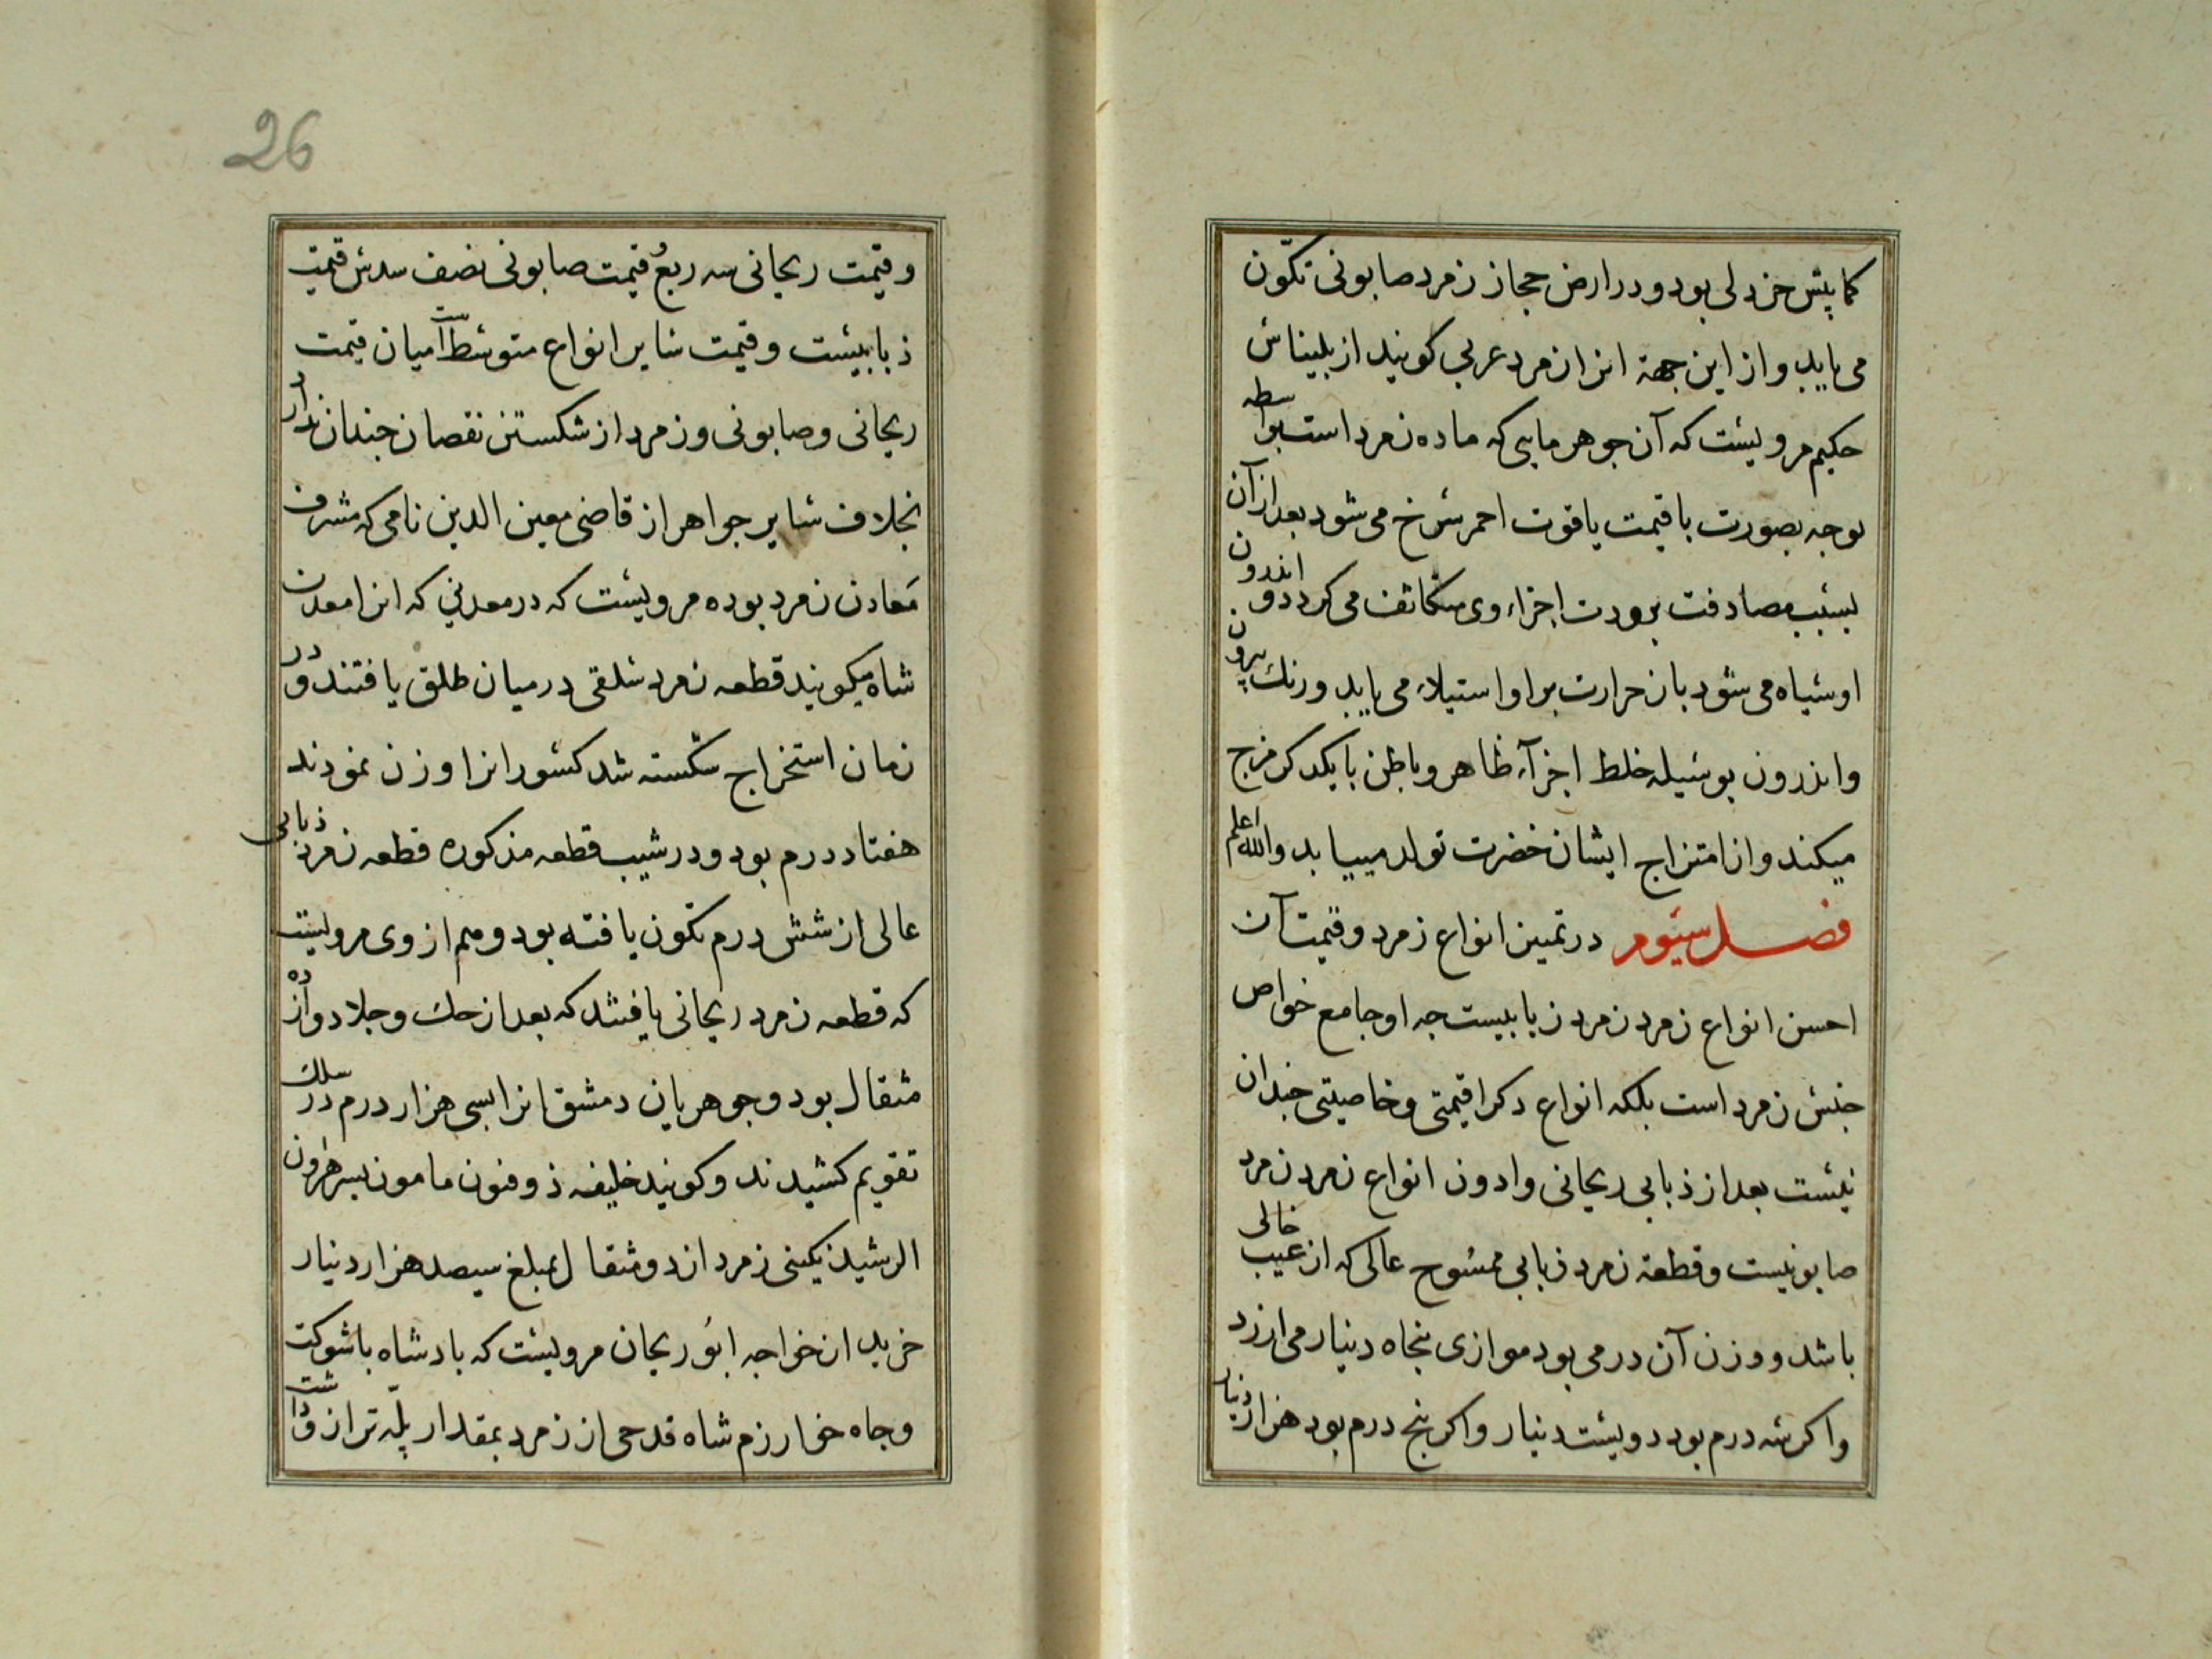 کمابیش خردلی بود و در ارض حجاز زمرد صابونی تکّون
می یابد و از این جهة انرا زمرد عربی کویند از بلیناس
حکیم مرویست که آن جوهر مایی که ماده زمرد است بواسطه
بصورت یاقوت احمر سرخ می شود بعد از آن
بسبب مصادفت برودت اجزاء وی متکاثف می کردد و اندرون
او سیاه می شود باز حرارت بر او استیلاء می یابد و رنک بیرون
و اندرون بوسیله خلط اجزآء ظاهر و باطن بایکدکر مزج
میکند و از امتزاج ایشان خضرت تولد مییابد والله اعلم
فصل سیّوم در ثمین انواع زمرد و قیمت آن
احسن انواع زمرد زمرد ذبابیست چه او جامع خواص
جنس زمرد است بلکه انواع دکر را قیمتی و خاصیتی چندان
نیست بعد از ذبابی ریحانی و ادون انواع زمرد زمرد
صابونیست و قطعهٔ زمرد ذبابی ممسوح عالی که از عیب خالی
باشد و وزن آن درمی بود موازی پنجاه دینار می ارزد
و اکر سه درم بود دویست دینار و اکر پنج درم بود هزار دینار
26
و قیمت ریحانی سه ربع قیمت صابونی نصف سدس قیمت
ذبابیست و قیمت سایر انواع متوسّط است میان قیمت
ریحانی و صابونی و زمرد از شکستن نقصان چندان ندارد
بخلاف سایر جواهر از قاضی معین الدین نامی که مشرف
معادن زمرد بوده مرویست که در معدنی که انرا معدن
شاه میکویند قطعه زمرد سلقی در میان طلق یافتند و در
زمان استخراج شکسته شد کسور انرا وزن نمودند
هفتاد درم بود و در شیب قطعه مذکوره قطعه زمرد ذبابی
عالی از شش درم تکون یافته بود و هم از وی مرویست
که قطعه زمرد ریحانی یافتند که بعد از حک و جلا دوازده
مثقال بود و جوهریان دمشق انرا بسی هزار درم در سلک
تقویم کشیدند و کویند خلیفه ذو فنون مامون پسر هرون
الرشید نکینی زمرد از دو مثقال بمبلغ سیصد هزار دینار
خرید از خواجه ابو ریحان مرویست که پادشاه باشوکت
و جاه خوارزم شاه قدحی از زمرد بمقدار پلّه ترازو داشت